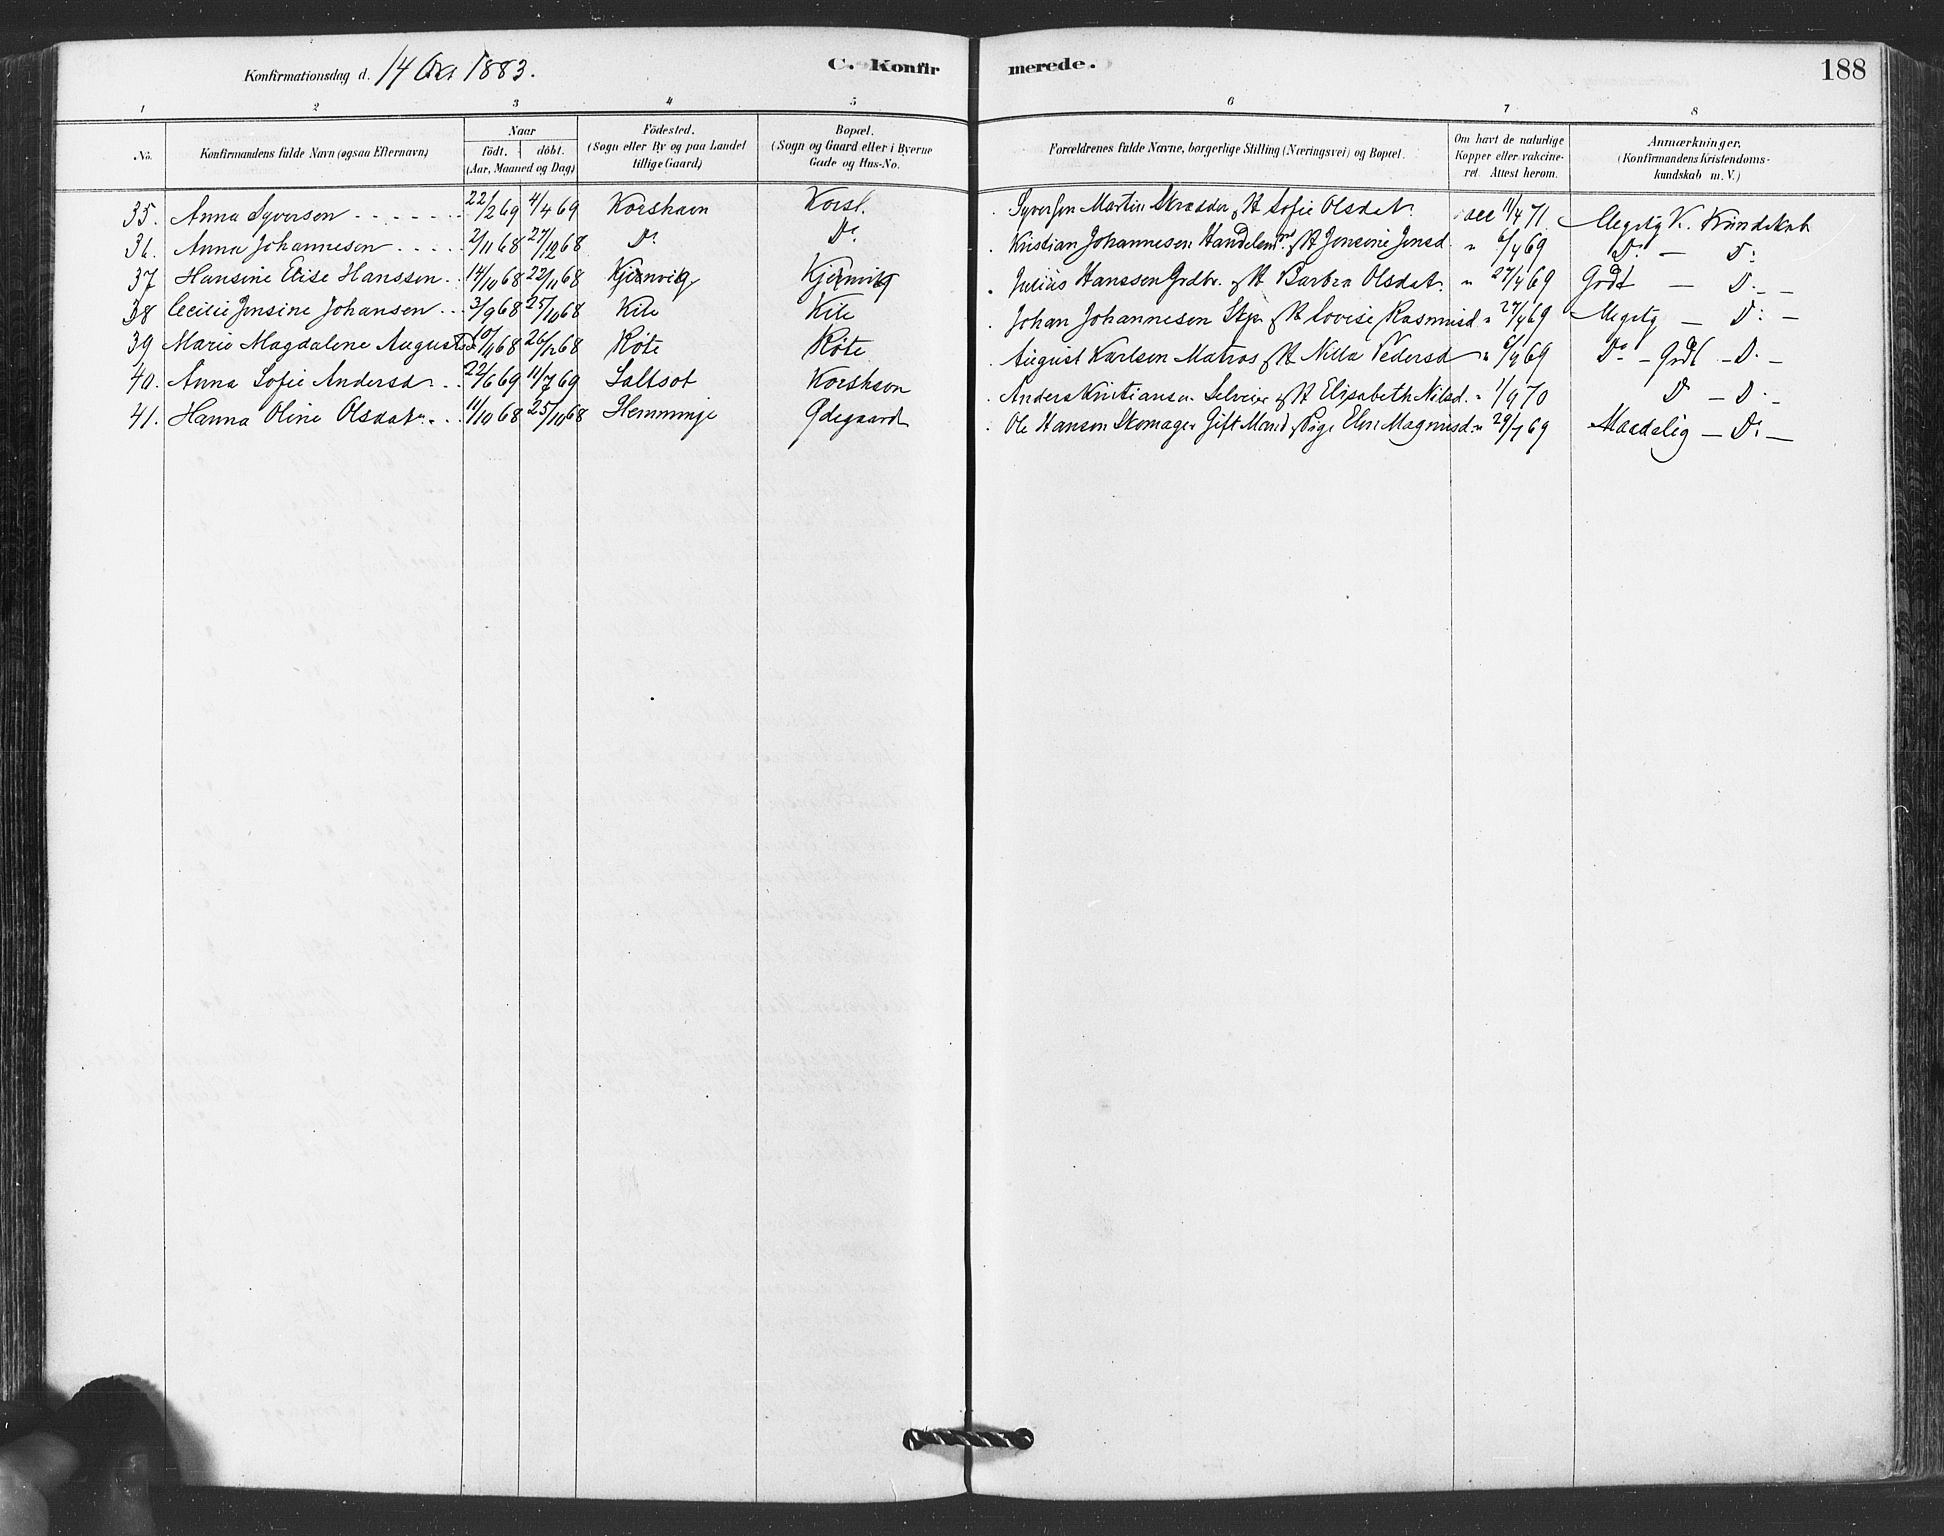 Konfirmationsdag d. 14 Okt 1883. C. Konfirmerede. 188
1 2 3 4 5 6 7 8
No. Konfirmandens fulde Navn (ogsaa Efternavn) Naar födt. döbt. (Aar, Maaned og Dag) Födested. (Sogn eller By og paa Landet tillige Gaard) Bopæl. (Sogn og Gaard eller i Byerne Gade og Hus-No. Forældrenes fulde Navne, borgerlige Stilling (Næringsvei) og Bopæl. Om havt de naturlige Kopper eller vakcineret. Attest herom. Anmærkninger, (Konfirmandens Kristendomskundskab m. V.)
35. Anna Syversen 22/2 69 4/4 69 Korshavn Korsh. Syversen Martin Skrædder & H Sofie Olsdat. vacc 11/4 71 Megetg K. Kundskab
36. Anna Johannesen 2/11 68 27/12 68 Do Do Kristian Johannesen Handelsmd. & H Jensine Jensd. " 6/4 69 Do — D:
37 Hansine Elise Hanssen 14/10 68 22/11 68 Kjernvig Kjernvig Julius Hanssen Grdbr. & H Barbra Olsdat. " 27/4 69 Godt — D. —
38 Cecilie Jensine Johansen 3/9 68 25/10 68 Kile Kile Johan Johannesen Skpr & H Lovise Rasmusd " 27/4 69 Megetg — D: —
39 Marie Magdalene Augustsd 10/11 68 26/12 68 Röte Röte August Karlsen Matros & H Nilla Pedersd " 6/4 69 Do — Godt — D. —
40. Anna Sofie Andersd 22/6 69 11/7 69 Saltsot Korshavn Anders Kristiansen Selveier & H Elisabeth Nilsd. " 1/9 70 D — D. —
41. Hanna Oline Olsdat 11/10 68 25/10 68 Hemminje Ödegaard Ole Hansen Skomager Gift Mand & Pige Elen Magnusd. " 29/7 69 Maadelig — D: —